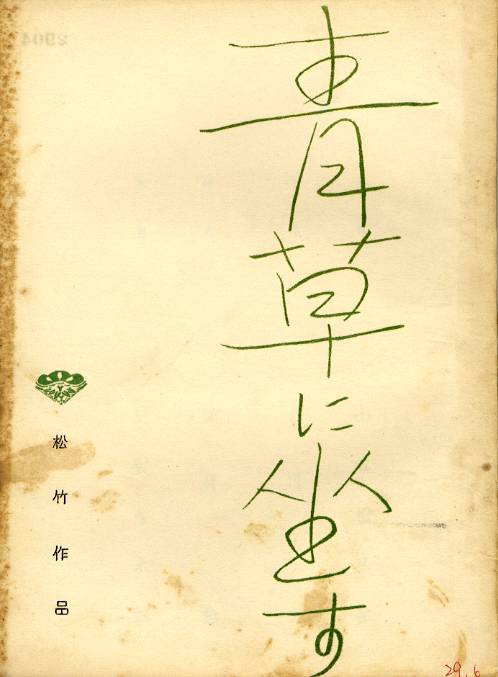 青草に坐す
松竹作品
29.6
2904